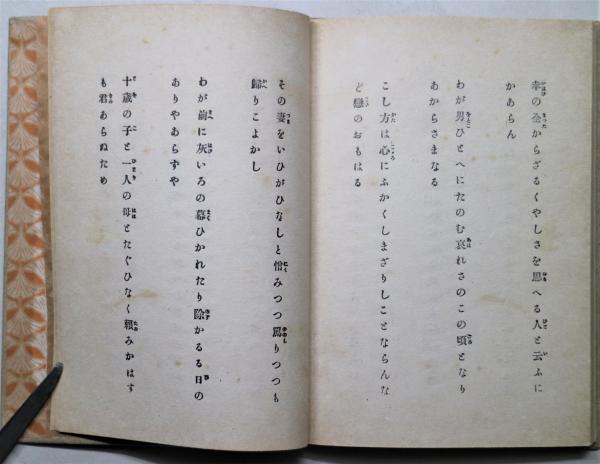 幸の全からざるくやしさを思へる人と云ふに
かあらん
わが男ひとへにたのむ哀れさのこの頃となり
あからさまなる
こし方は心にふかくしまざりしことならんな
ど戀のおもはる
その妻をいひがひなしと憎みつつ罵りつつも
歸りこよかし
わが前に灰いろの幕ひかれたり除かるる日の
ありやあらずや
十歳の子と一人の母とたぐひなく頼みかはす
も君あらぬため